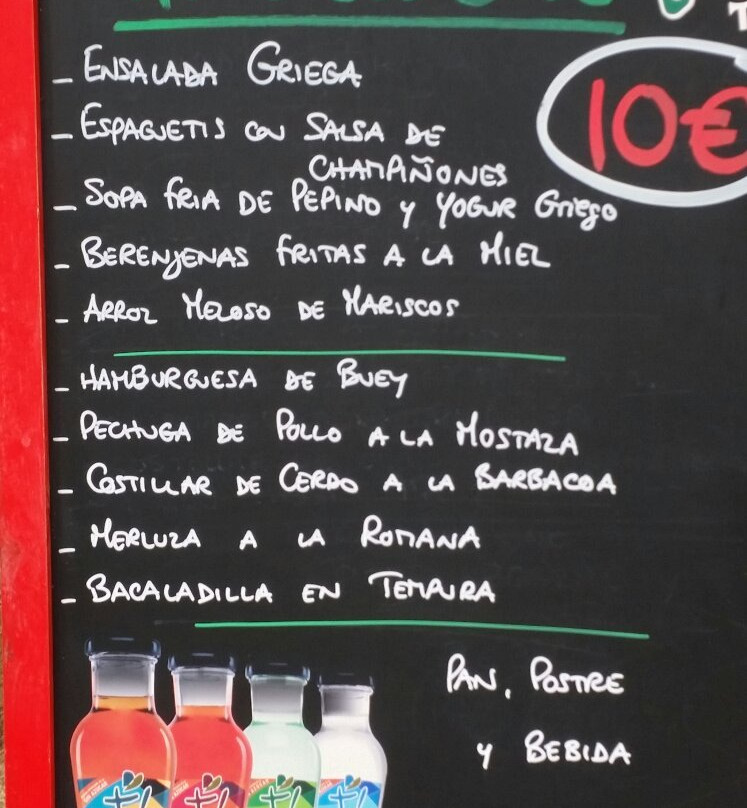 - ENSALADA GRIEGA
10€
- ESPAGUETIS CON SALSA DE
CHAMPIÑONES
- SOPA FRIA DE PEPINO Y YOGUR Griego
- BERENJENAS FRITAS A LA MIEL
- ARROZ MELOSO DE MARISCOS
- HAMBURGUESA DE BUEY
- PECHUGA DE POLLO A LA MOSTAZA
- COSTILLAR DE CERDO A LA BARBACOA
- MERLUZA A LA ROMANA
- BACALADILLA EN TEMPURA
PAN, POSTRE
Y BEBIDA